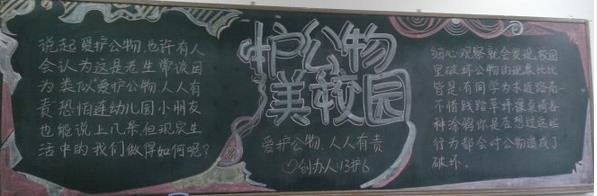 说起爱护公物,也许有人
会认为这是老生常谈因
为类似爱护公物人人有
责恐怕连幼儿园小朋友
也能说上几条但现实生
活中的我们做得如何呢?
护公物
美校园
爱护公物,人人有责
创办人:13护6
细心观察就会发现,校园
里破坏公物的现象比比
皆是有同学为求近路者
不惜践踏草坪课桌椅各
种涂鸦你是否想过这些
行为都会对公物造成了
破坏。